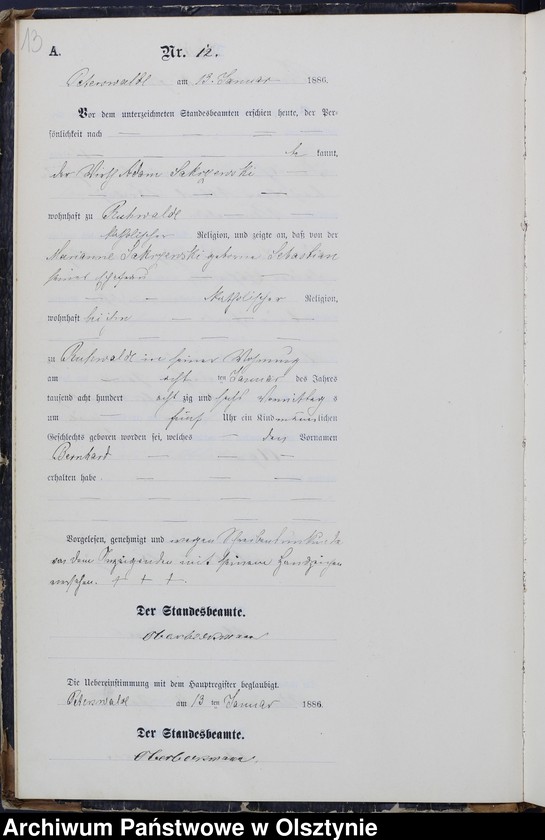 13
A. Nr. 12.
Peterswalde am 13. Januar 1886.
Vor dem unterzeichneten Standesbeamten erschien heute, der Per-
sönlichkeit nach
be kannt,
der Wirth Adam Sakrzewski
wohnhaft zu Ruhwalde
katholischer Religion, und zeigte an, daß von der
Marianne Sakrzewski geborene Sebastian
seiner Ehefrau
katholischer Religion,
wohnhaft bei ihm
zu Ruhwalde in seiner Wohnung
am acht ten Januar des Jahres
tausend acht hundert acht zig und sechs Vormittag s
um fünf Uhr ein Kind männlichen
Geschlechts geboren worden sei, welches den Vornamen
Bernhard
erhalten habe.
Vorgelesen, genehmigt und wegen Schreibensunkunde
von dem Anzeigenden mit seinem Handzeichen
versehen. + + +
Der Standesbeamte.
Die Uebereinstimmung mit dem Hauptregister beglaubigt.
Peterswalde am 13 ten Januar 1886.
Der Standesbeamte.
Archiwum Państwowe w Olsztynie